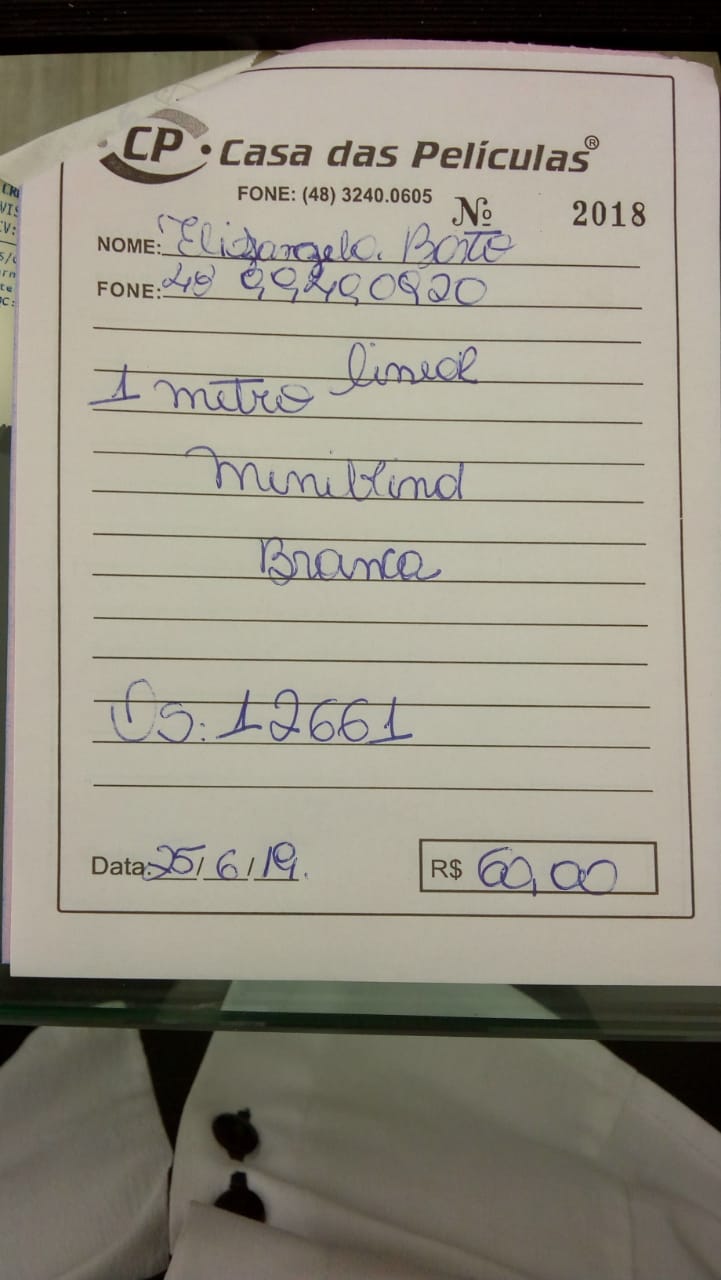 CP · Casa das Películas®
FONE: (48) 3240.0605
Nº 2018
NOME: Elizangela. Borto
FONE: 48 99490920
1 metro linear
Miniblind
Branca
OS: 12661
Data: 25/ 6 / 19.
R$ 60,00